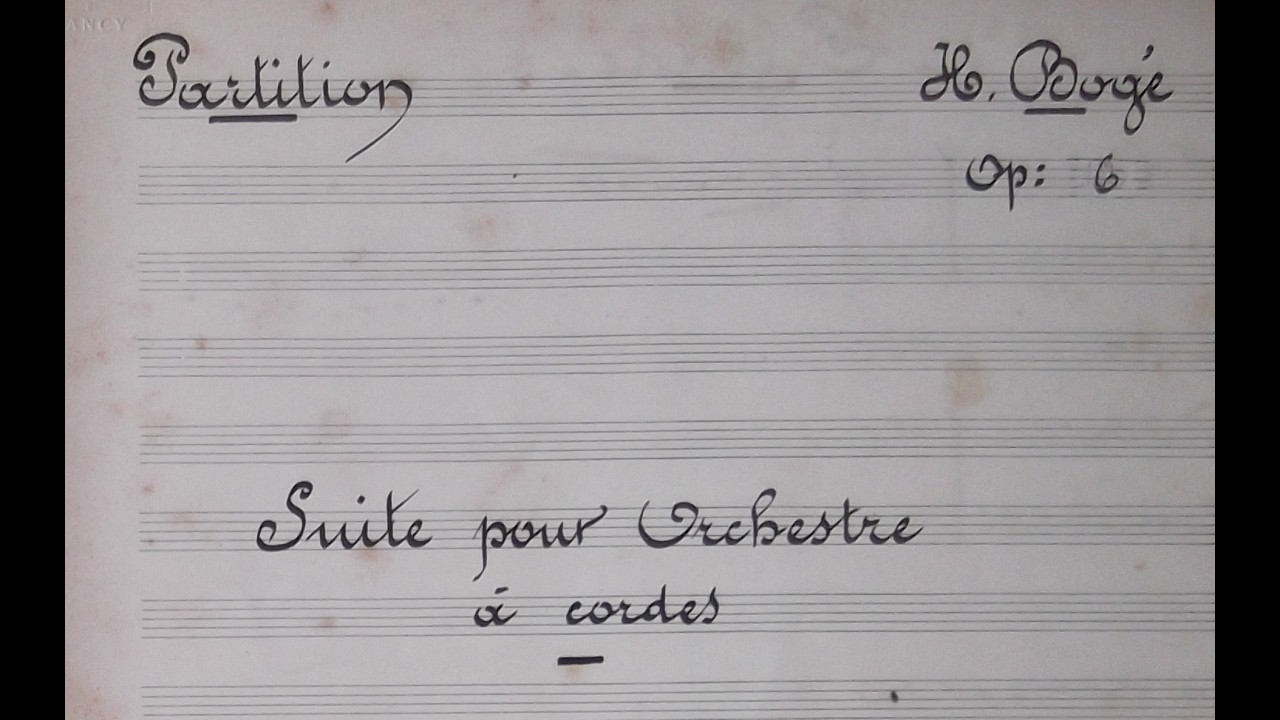 Partition H. Bogé
Op: 6
Suite pour Orchestre
à cordes